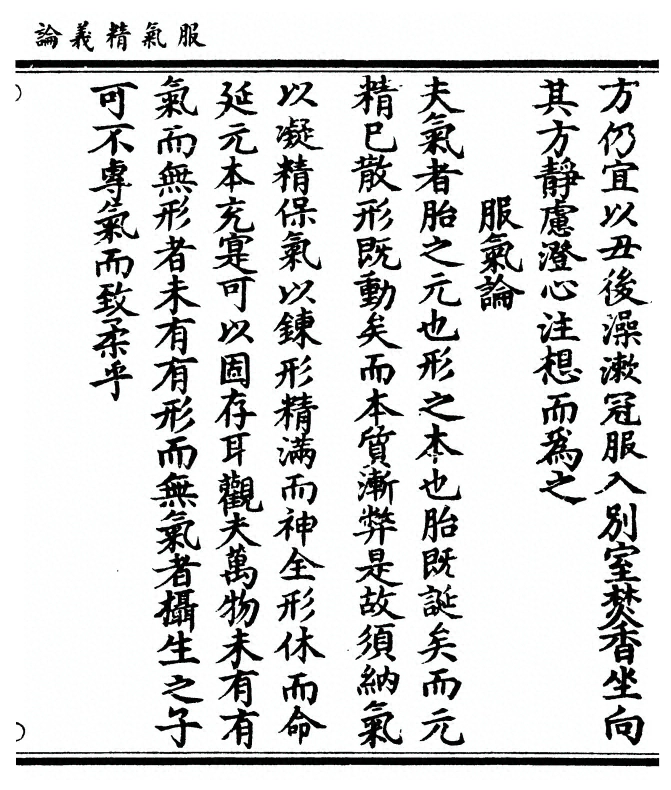 服氣精義論
方仍宜以丑後澡漱冠服入別室焚香坐向
其方靜慮澄心注想而爲之
服氣論
夫氣者胎之元也形之本也胎既誕矣而元
精已散形既動矣而本質漸弊是故須納氣
以凝精保氣以鍊形精滿而神全形休而命
延元本充寔可以固存耳觀夫萬物未有有
氣而無形者未有有形而無氣者攝生之子
可不專氣而致柔乎